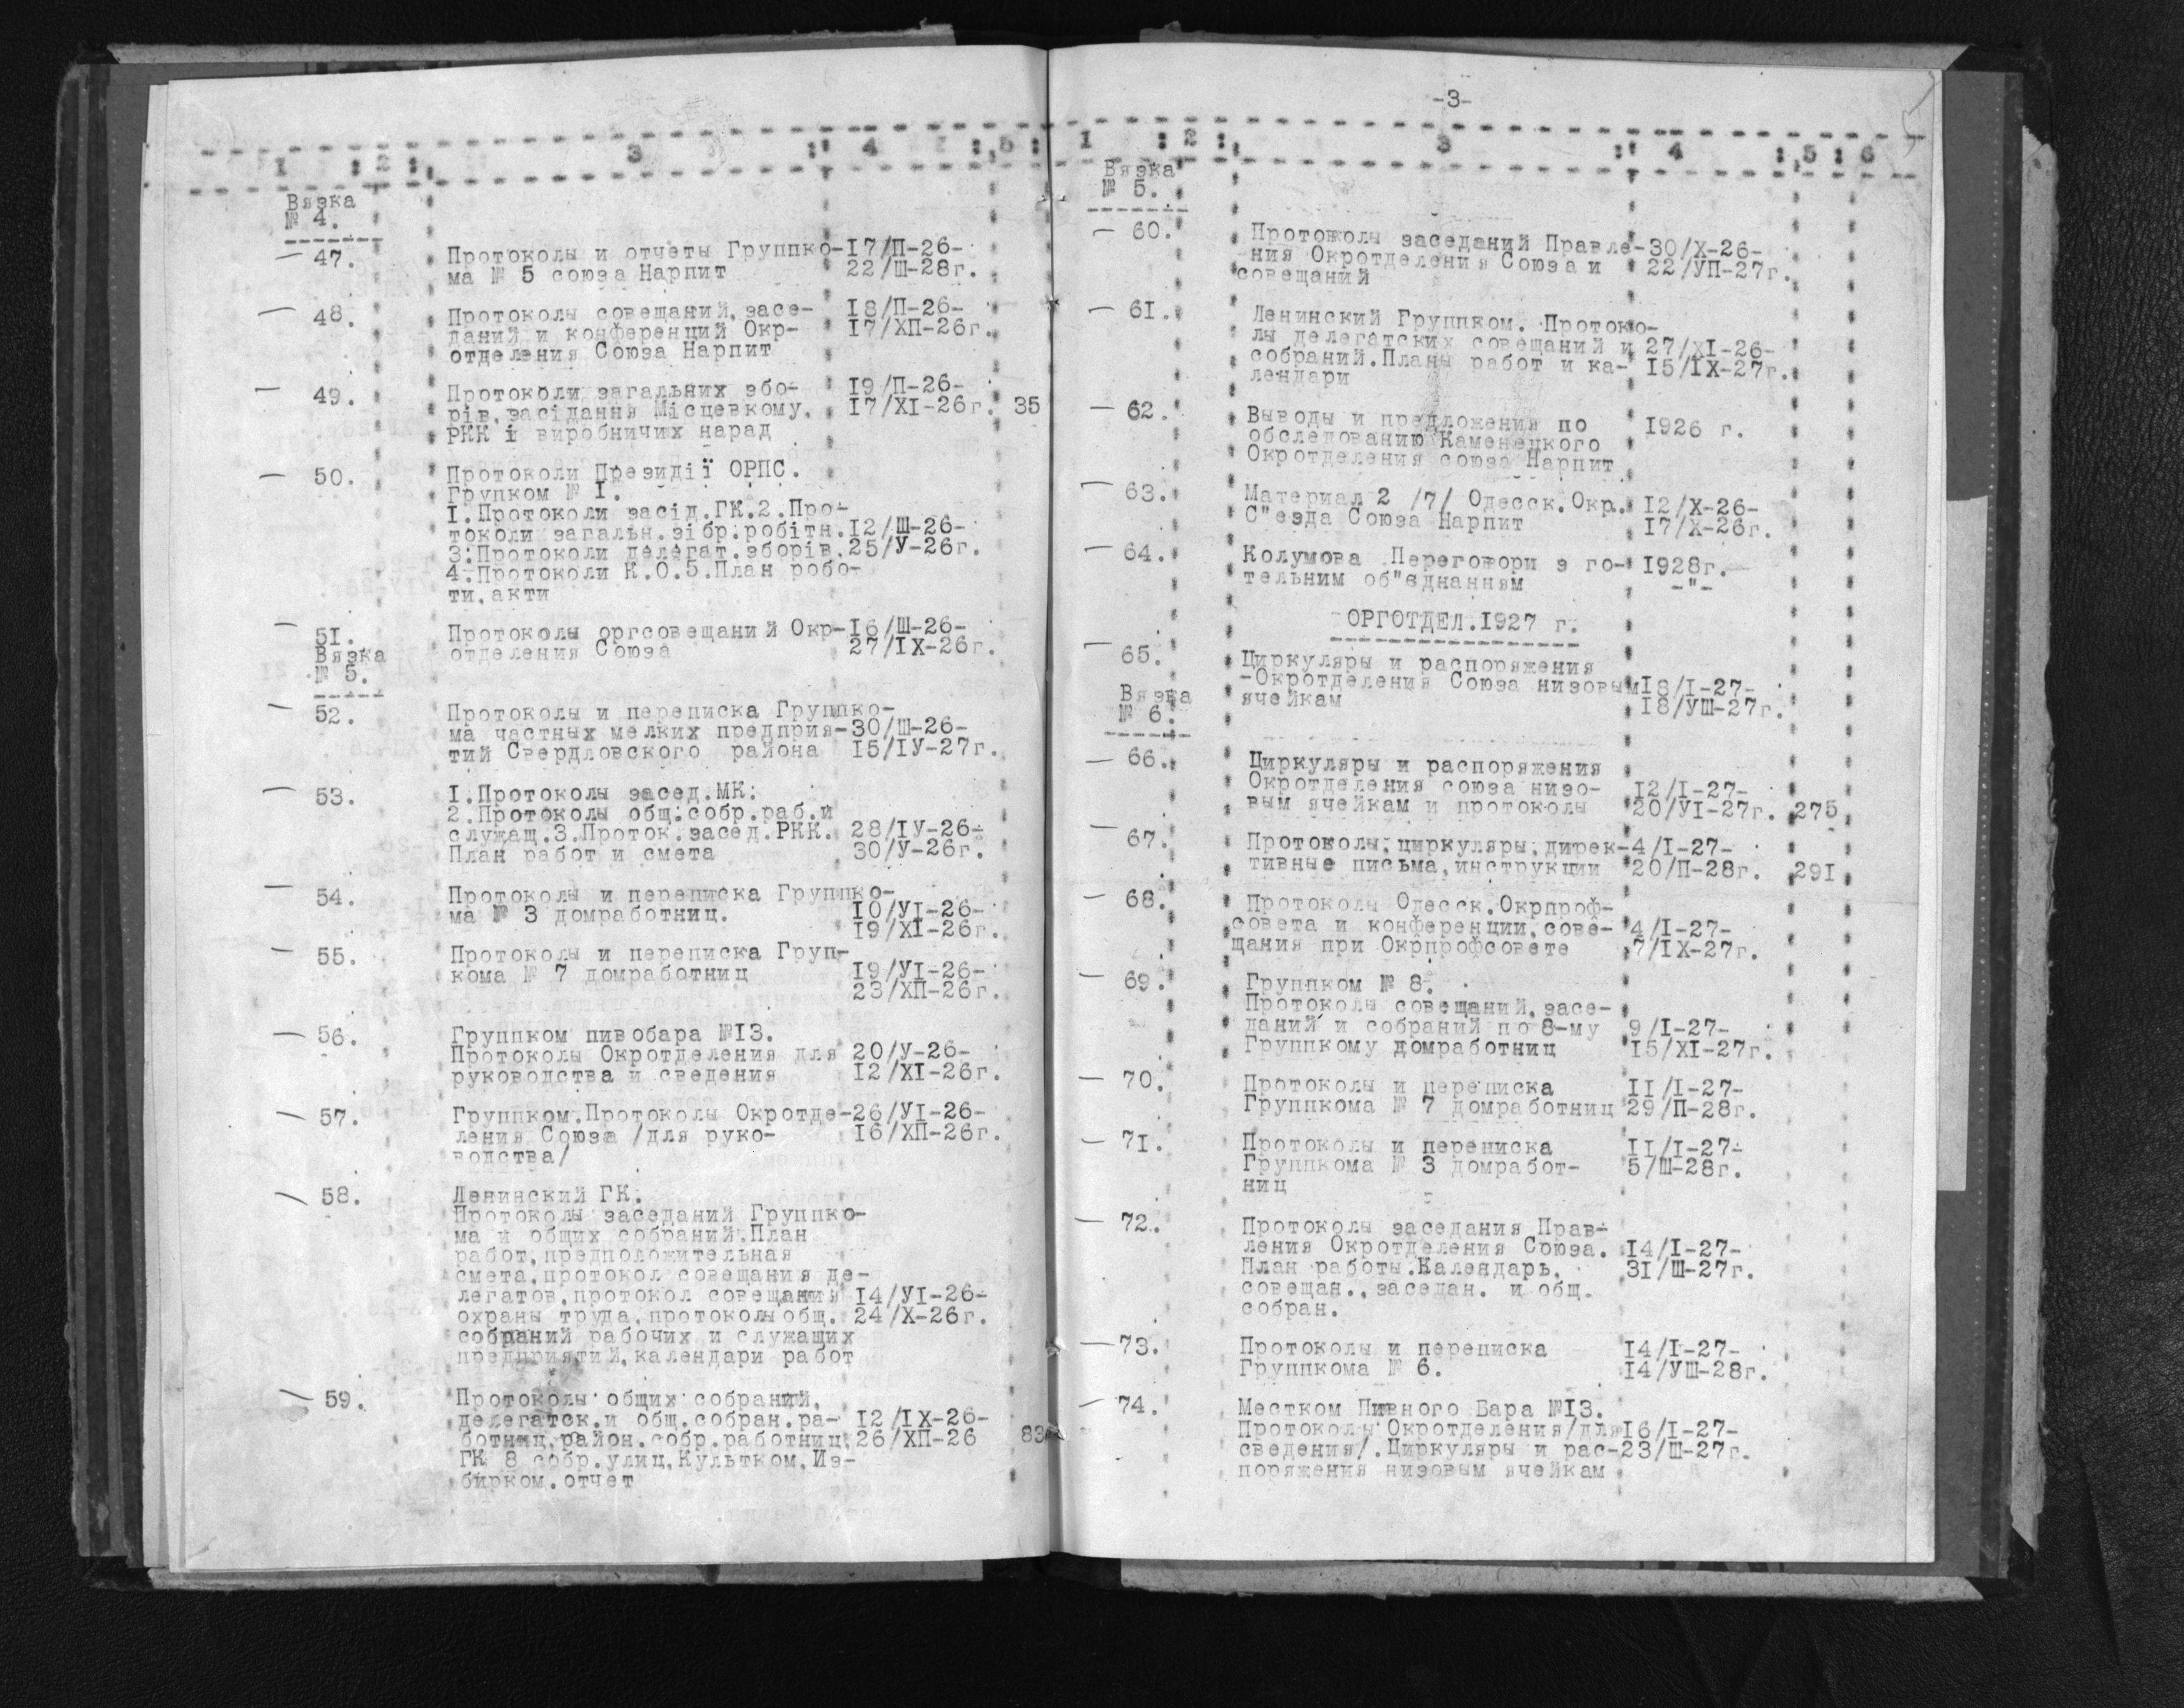 1 : 2 : 3 : 4 : 5 :
Вязка
№ 4.
47. Протоколы и отчеты Группко-17/П-26-
ма № 5 союза Нарпит 22/Ш-28г.
48. Протоколы совещаний, засе- 18/П-26-
даний и конференций Окр- 17/ХП-26г.
отделения Союза Нарпит
49. Протоколи загальних збо- 19/П-26-
рів, засідання Місцевкому, 17/XI-26г. 35
РКК і виробничих нарад
50. Протоколи Президії ОРПС.
Групком № I.
I.Протоколи засід.ГК.2.Про-
токоли загальн.зібр.робітн.12/Ш-26-
3.Протоколи делегат.зборів.25/У-26г.
4.Протоколи К.О.5.План робо-
ти, акти
51. Протоколы оргсовещаний Окр-16/Ш-26-
Вязка отделения Союза 27/IX-26г.
№ 5.
52. Протоколы и переписка Группко-
ма частных мелких предприя-30/Ш-26-
тий Свердловского района 15/IУ-27г.
53. I.Протоколы засед.МК.
2.Протоколы общ.собр.раб.и
служащ.3.Проток.засед.РКК. 28/IУ-26-
План работ и смета 30/У-26г.
54. Протоколы и переписка Группко-
ма № 3 домработниц. 10/УI-26-
19/XI-26г.
55. Протоколы и переписка Груп-
кома № 7 домработниц 19/УI-26-
23/ХП-26г.
56. Группком пивобара №13.
Протоколы Окротделения для 20/У-26-
руководства и сведения 12/XI-26г.
57. Группком.Протоколы Окротде-26/УI-26-
ления Союза /для руко- 16/ХП-26г.
водства/
58. Ленинский ГК.
Протоколы заседаний Группко-
ма и общих собраний.План
работ, предположительная
смета, протокол совещания де-
легатов, протокол совещаний 14/УI-26-
охраны труда, протоколы общ. 24/X-26г.
собраний рабочих и служащих
предприятий, календари работ
59. Протоколы общих собраний,
делегатск.и общ.собран.ра- 12/IX-26-
ботниц, район.собр.работниц, 26/ХП-26 83
ГК 8 собр.улиц, Культком, Из-
бирком.отчет
-3-
1 : 2 : 3 : 4 : 5 : 6
Вязка
№ 5.
60. Протоколы заседаний Правле-30/X-26-
ния Окротделения Союза и 22/УП-27г.
совещаний
61. Ленинский Группком. Протоко-
лы делегатских совещаний и 27/XI-26-
собраний.Планы работ и ка- 15/IX-27г.
лендари
62. Выводы и предложения по 1926 г.
обследованию Каменецкого
Окротделения союза Нарпит
63. Материал 2 /7/ Одесск.Окр. 12/X-26-
С"езда Союза Нарпит 17/X-26г.
64. Колумова Переговори з го- 1928г.
тельним об"єднанням -"-
ОРГОТДЕЛ.1927 г.
65. Циркуляры и распоряжения
-Окротделения Союза низовым18/I-27-
Вязка ячейкам 18/УШ-27г.
№ 6.
66. Циркуляры и распоряжения
Окротделения союза низо- 12/I-27-
вым ячейкам и протоколы 20/УI-27г. 275
67. Протоколы, циркуляры, дирек-4/I-27-
тивные письма, инструкции 20/П-28г. 291
68. Протоколы Одесск.Окрпроф-
совета и конференции, сове- 4/I-27-
щания при Окрпрофсовете 7/IX-27г.
69. Группком № 8.
Протоколы совещаний, засе-
даний и собраний по 8-му 9/I-27-
Группкому домработниц 15/XI-27г.
70. Протоколы и переписка II/I-27-
Группкома № 7 домработниц 29/П-28г.
71. Протоколы и переписка II/I-27-
Группкома № 3 домработ- 5/Ш-28г.
ниц
72. Протоколы заседания Прав-
ления Окротделения Союза. 14/I-27-
План работы.Календарь, 31/Ш-27г.
совещан., заседан. и общ.
собран.
73. Протоколы и переписка 14/I-27-
Группкома № 6. 14/УШ-28г.
74. Местком Пивного Бара №13.
Протоколы Окротделения/для16/I-27-
сведения/.Циркуляры и рас-23/Ш-27г.
поряжения низовым ячейкам